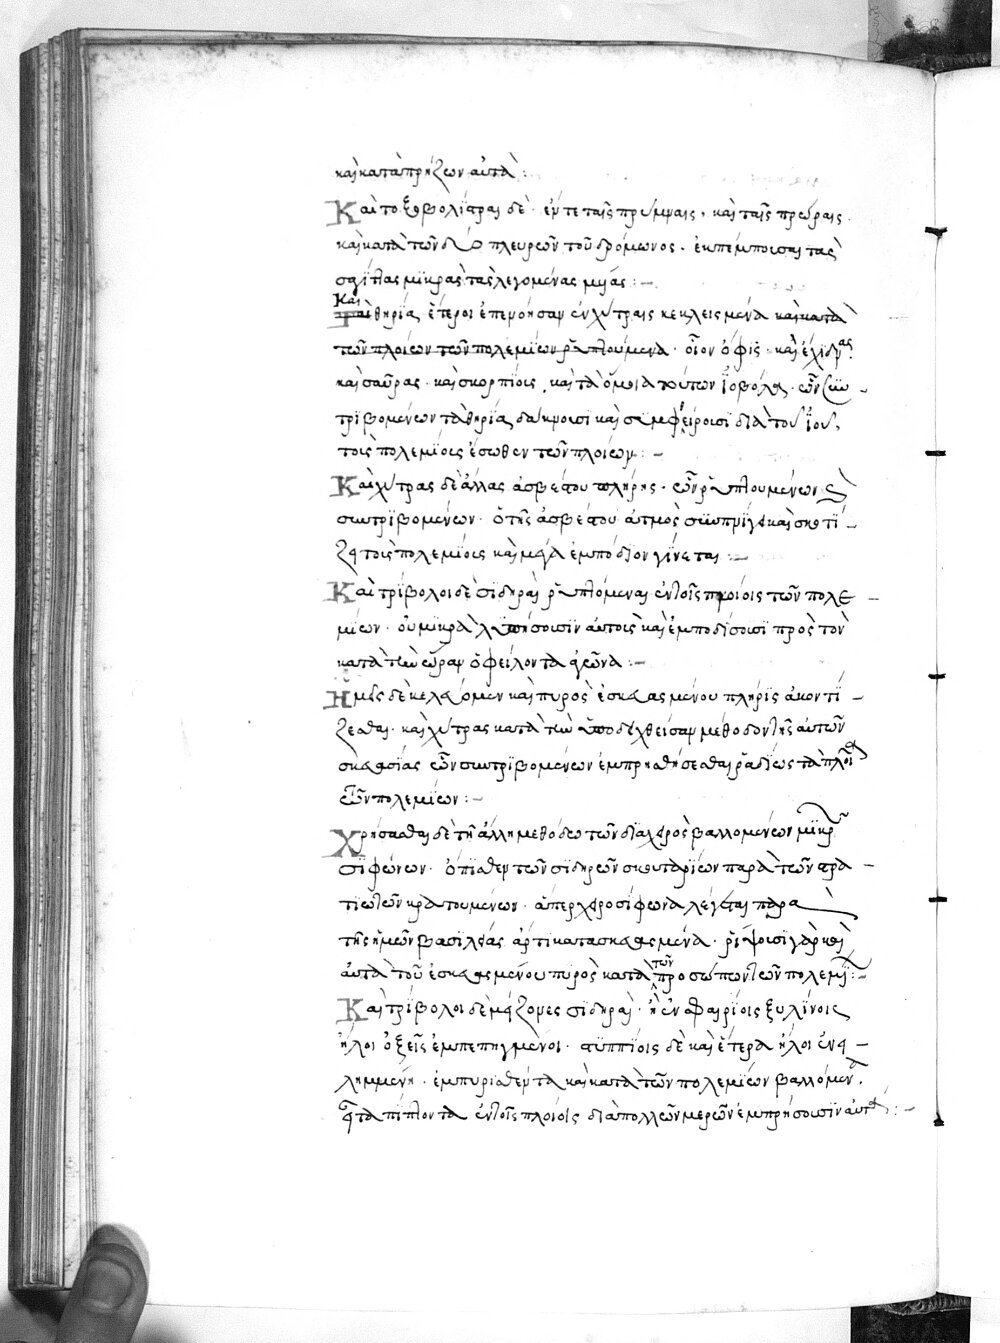 καὶ καταπρῆζον αὐτά:
Καὶ τοξοβολίστραι δὲ· ἔν τε ταῖς πρύμναις, καὶ ταῖς πρώραις
καὶ κατὰ τῶν δύο πλευρῶν τοῦ δρόμωνος· ἐκπέμπουσαι τὰς
σαγίτας μικρὰς τὰς λεγομένας μυίας:—
Καὶ θηρία ἕτεροι ἐπενόησαν ἐν χύτραις κεκλεισμένα καὶ κατὰ
τῶν πλοίων τῶν πολεμίων ῥιπτούμενα· οἷον ὄφις· καὶ ἐχίδνας
καὶ σαῦρας· καὶ σκορπίους, καὶ τὰ ὅμοια τούτων ἰοβόλα· ὧν συν
τριβομένων τὰ θηρία δάκνουσι καὶ συμφθείρουσι διὰ τοῦ ἰοῦ,
τοῖς πολεμίοις ἔσωθεν τῶν πλοίων:—
Καὶ χύτρας δὲ ἄλλας ἀσβέστου πλήρης· ὧν ῥιπτουμένων καὶ
συντριβομένων· ὁ τῆς ἀσβέστου ἀτμὸς συμπνίγει καὶ σκοτί—
ζει τοῖς πολεμίοις καὶ μέγα ἐμπόδιον γίνεται:—
Καὶ τρίβολοι δὲ σιδηραῖ ῥιπτόμεναι ἐν τοῖς πλοίοις τῶν πολε—
μίων· οὐ μικρὰ λυπήσουσιν αὐτοῖς καὶ ἐμποδίσουσι πρὸς τὸν
κατὰ τὴν ὥραν ὀφείλοντα ἀγῶνα:—
Ἡμεῖς δὲ κελεύομεν καὶ πυρὸς ἐσκευασμένου πλήρις ἀκοντί—
ζεσθαι· καὶ χύτρας κατὰ τὴν ὑποδειχθεῖσαν μέθοδον τῆς αὐτῶν
σκευασίας ὧν συντριβομένων ἐμπρησθήσεσθαι ῥαδίως τὰ πλοῖα
τῶν πολεμίων:—
Χρήσασθαι δὲ τῇ ἄλλῃ μεθόδω τῶν διὰ χειρὸς βαλλομένων μικρῶν
σιφώνων· ὄπισθεν τῶν σιδηρῶν σκουταρίων παρὰ τῶν στρα—
τιωτῶν κρατουμένων· ἅπερ χειροσίφωνα λέγεται παρὰ
τῆς ἡμῶν βασιλείας ἄρτι κατασκευασμένα· ῥίψουσι γὰρ καὶ
αὐτὰ τοῦ ἐσκευασμένου πυρὸς κατὰ τῶν προσώπων τῶν πολεμίων:—
Καὶ τρίβολοι δὲ μείζονες σιδηραῖ· ἢ ἐν σφαιρίοις ξυλίνοις
ἧλοι ὀξεῖς ἐμπεπηγμένοι· στυππίοις δὲ καὶ ἑτέρα ἧλοι ἐνει—
λημμένη· ἐμπυρισθέντα καὶ κατὰ τῶν πολεμίων βαλλόμενα.
εἶτα πίπτοντα ἐν τοῖς πλοίοις διὰ πολλῶν μερῶν ἐμπρήσουσιν αὐτά:—